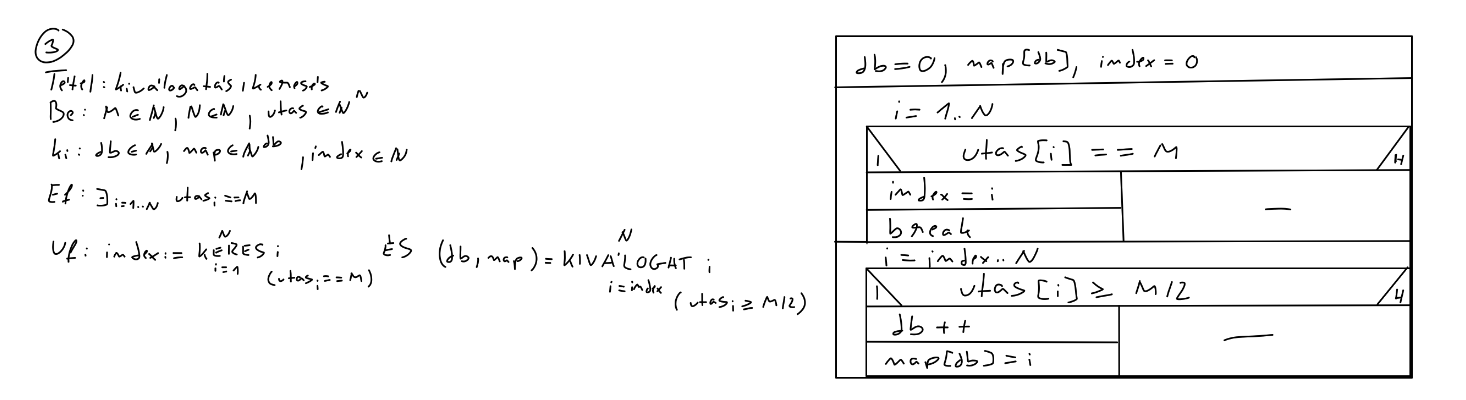 3
Tétel: kiválogatás, keresés
Be: M ∈ N, N ∈ N, utas ∈ N^N
ki: db ∈ N, nap ∈ N^db, index ∈ N
Ef: ∃ i=1..N utas_i == M
Uf: index := KERES i ÉS (db, nap) = KIVÁLOGAT i
N N
i=1 i=index
(utas_i == M) (utas_i ≥ M/2)
db=0, nap[db], index = 0
i = 1..N
I utas[i] == M H
index = i —
break
i = index..N
I utas[i] ≥ M/2 H
db++ —
nap[db] = i